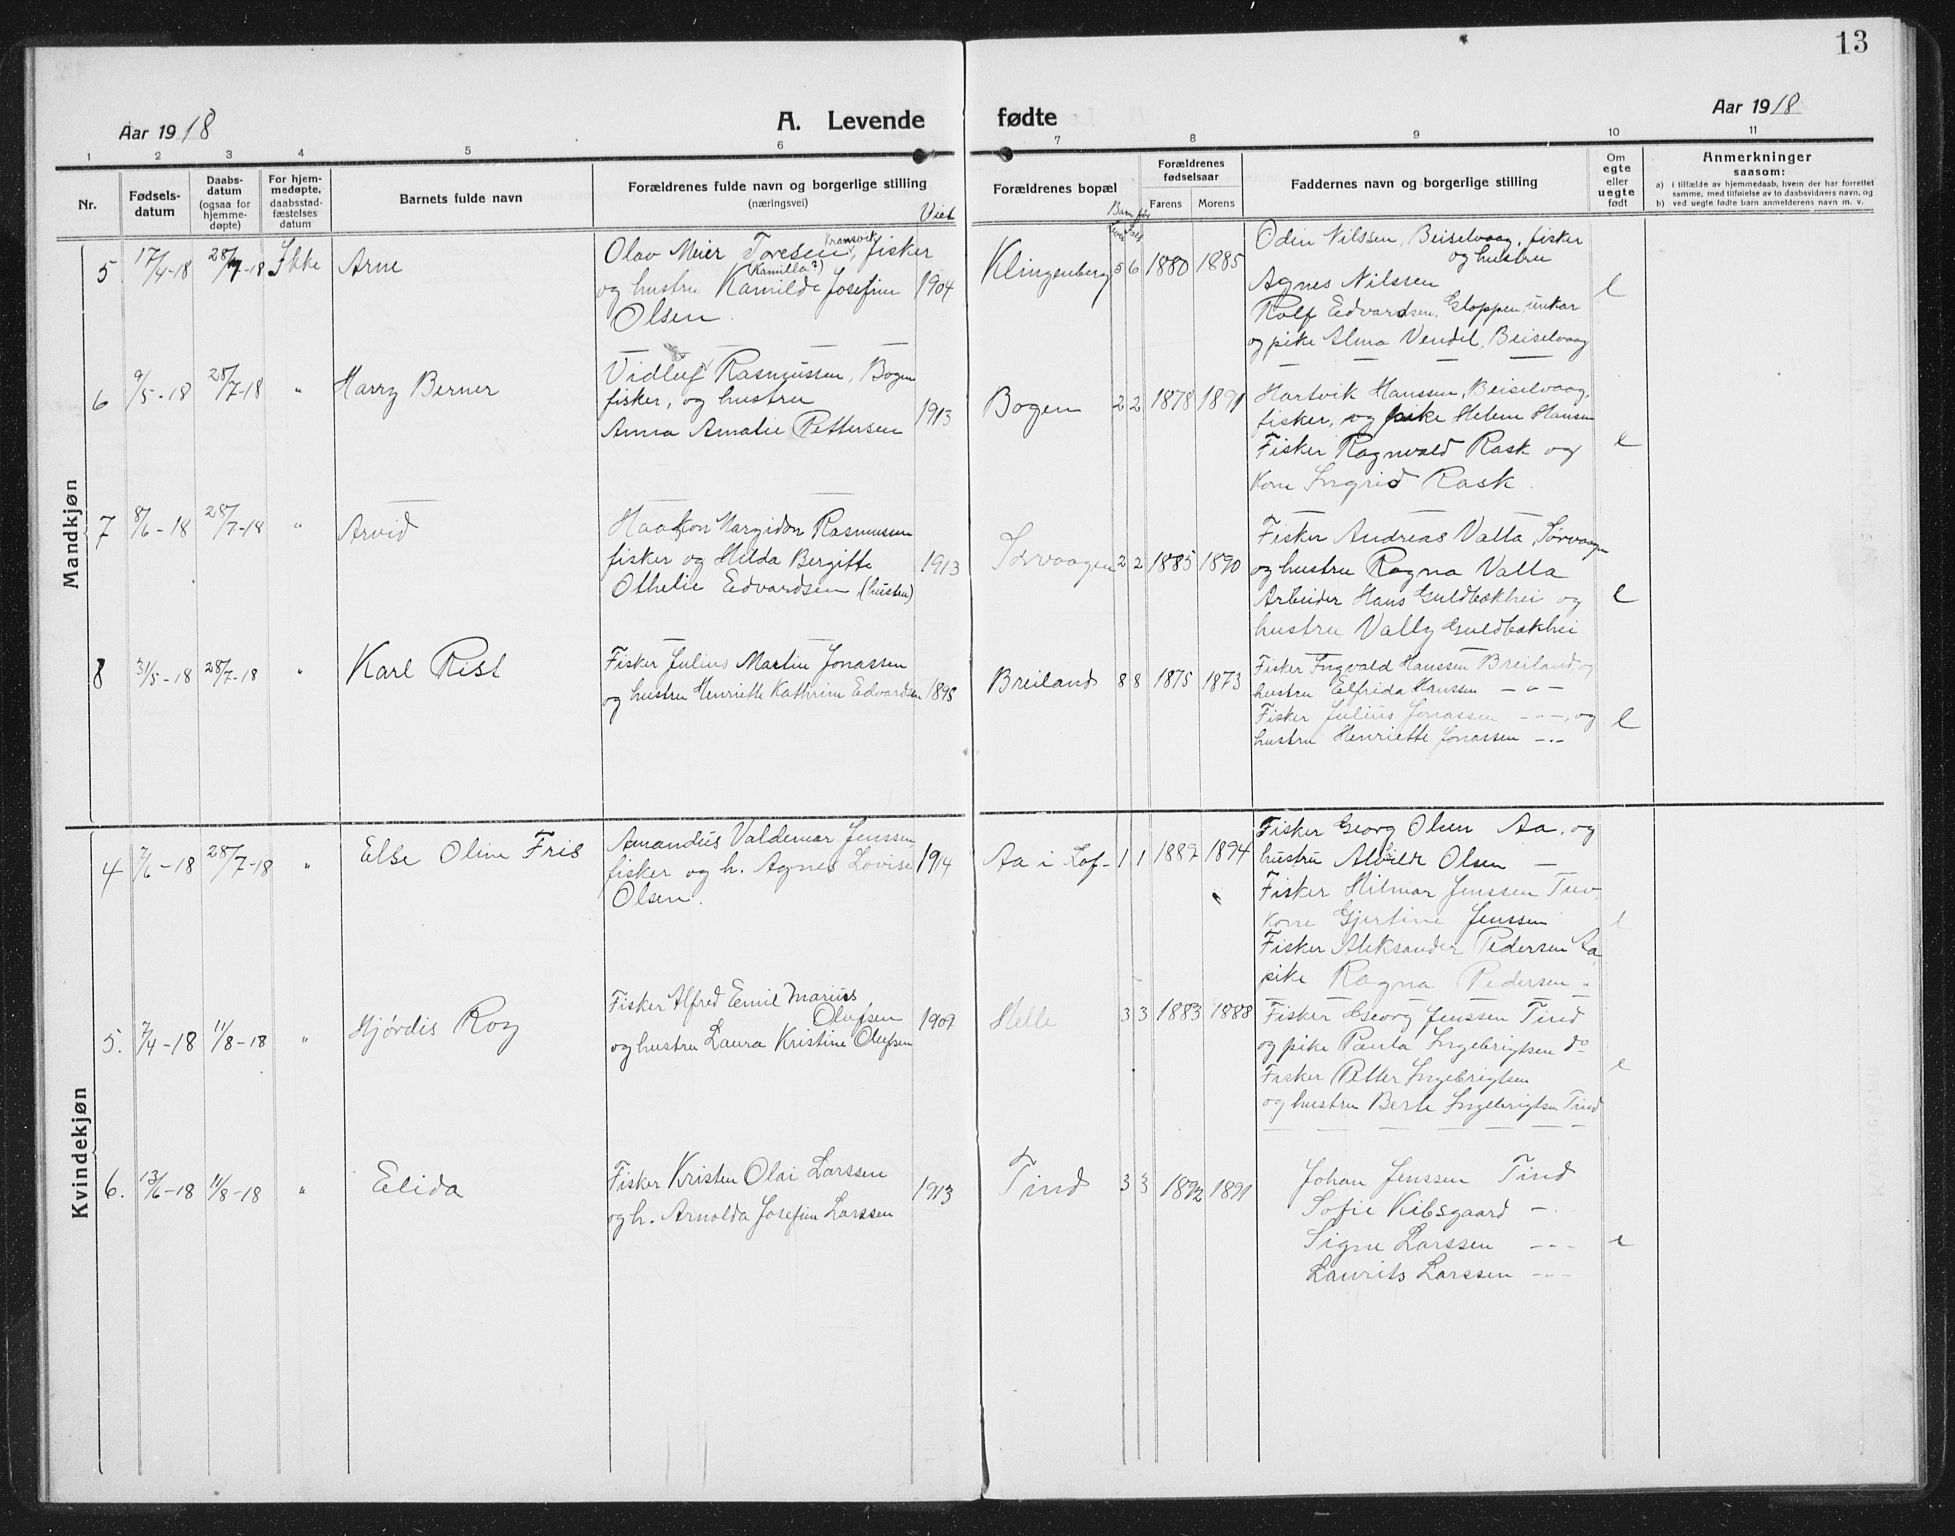 13
Aar 1918
A. Levende fødte
Aar 1918
1 2 3 4 5 6 7 8 9 10 11
Nr.
Fødsels-
datum
Daabs-
datum
(ogsaa for
hjemme-
døpte)
For hjem-
medøpte,
daabsstad-
fæstelses
datum
Barnets fulde navn
Forældrenes fulde navn og borgerlige stilling
(næringsvei)
Viet
Forældrenes bopæl
Barn før
Forældrenes
fødselsaar
Farens Morens
Faddernes navn og borgerlige stilling
Om
egte
eller
uegte
født
Anmerkninger
saasom:
a) i tilfælde av hjemmedaab, hvem der har forrettet
samme, med tilføielse av to daabsvidners navn, og
b) ved uegte fødte barn anmelderens navn m. v.
Mandkjøn
5 17/4-18 28/7-18 Ikke Arne
Olav Meier Toresen Kransvik, fisker
(Kamilla?)
og hustru Kamilde Josefine 1904
Olsen.
Klingenberg 5 6 1880 1885
Odin Nilssen, Beiselvaag, fisker
og hustru
Agnes Nilssen
Rolf Edvardsen, Gloppen, unkar
og pike Alma Vendel, Beiselvaag
e
6 9/5-18 28/7-18 " Harry Berner
Vidluf Rasmussen, Bogen
fisker, og hustru
Anna Amalie Pettersen 1913
Bogen 2 2 1878 1891
Hartvik Hanssen, Beiselvaag,
fisker, og pike Helene Hansen
Fisker Ragnvald Rask og
Kone Ingrid Rask.
e
7 8/6-18 28/7-18 " Arvid
Haakon Margidon Rasmussen
fisker og Hilda Bergitte 1913
Othelie Edvardsen (hustru)
Sørvaagen 2 2 1885 1890
Fisker Andreas Valla, Sørvaagen
og hustru Ragna Valla
Arbeider Hans Guldbækhei og
hustru Vally Guldbækhei
e
8 31/5-18 28/7-18 " Karl Rist
Fisker Julius Martin Jonassen
og hustru Henriette Kathrine Edvardsen 1895
Breiland 8 8 1875 1873
Fisker Ingvald Hanssen Breiland og
hustru Elfrida Hanssen - " -
Fisker Julius Jonassen - " -, og
hustru Henriette Jonassen - " -
e
Kvindekjøn
4 7/6-18 28/7-18 " Else Oline Fris
Amandus Valdemar Jenssen
fisker og h. Agnes Lovise 1914
Olsen.
Aa i Lof- 1 1 1889 1894
Fisker Georg Olsen Aa, og
hustru Alvilde Olsen —
Fisker Hilmar Jenssen
Kone Gjertine Jenssen
Fisker Aleksander Pedersen Aa
pike Ragna Pedersen "
e
5. 7/4-18 11/8-18 " Hjørdis Roy
Fisker Alfred Emil Marius
Olufsen 1907
og hustru Laura Kristine Olufsen
Helle 3 3 1883 1888
Fisker Georg Jenssen Tind
og pike Paula Ingebrigtsen do
Fisker Petter Ingebrigtsen
og hustru Berte Ingebrigtsen Tind
e
6. 13/6-18 11/8-18 " Elida
Fisker Kristen Olai Larssen
og h. Arnolda Josefine Larssen 1913
Tind 3 3 1892 1891
Johan Jenssen Tind
Sofie Kibsgaard —
Signe Larssen - " -
Laurits Larssen - " -
e